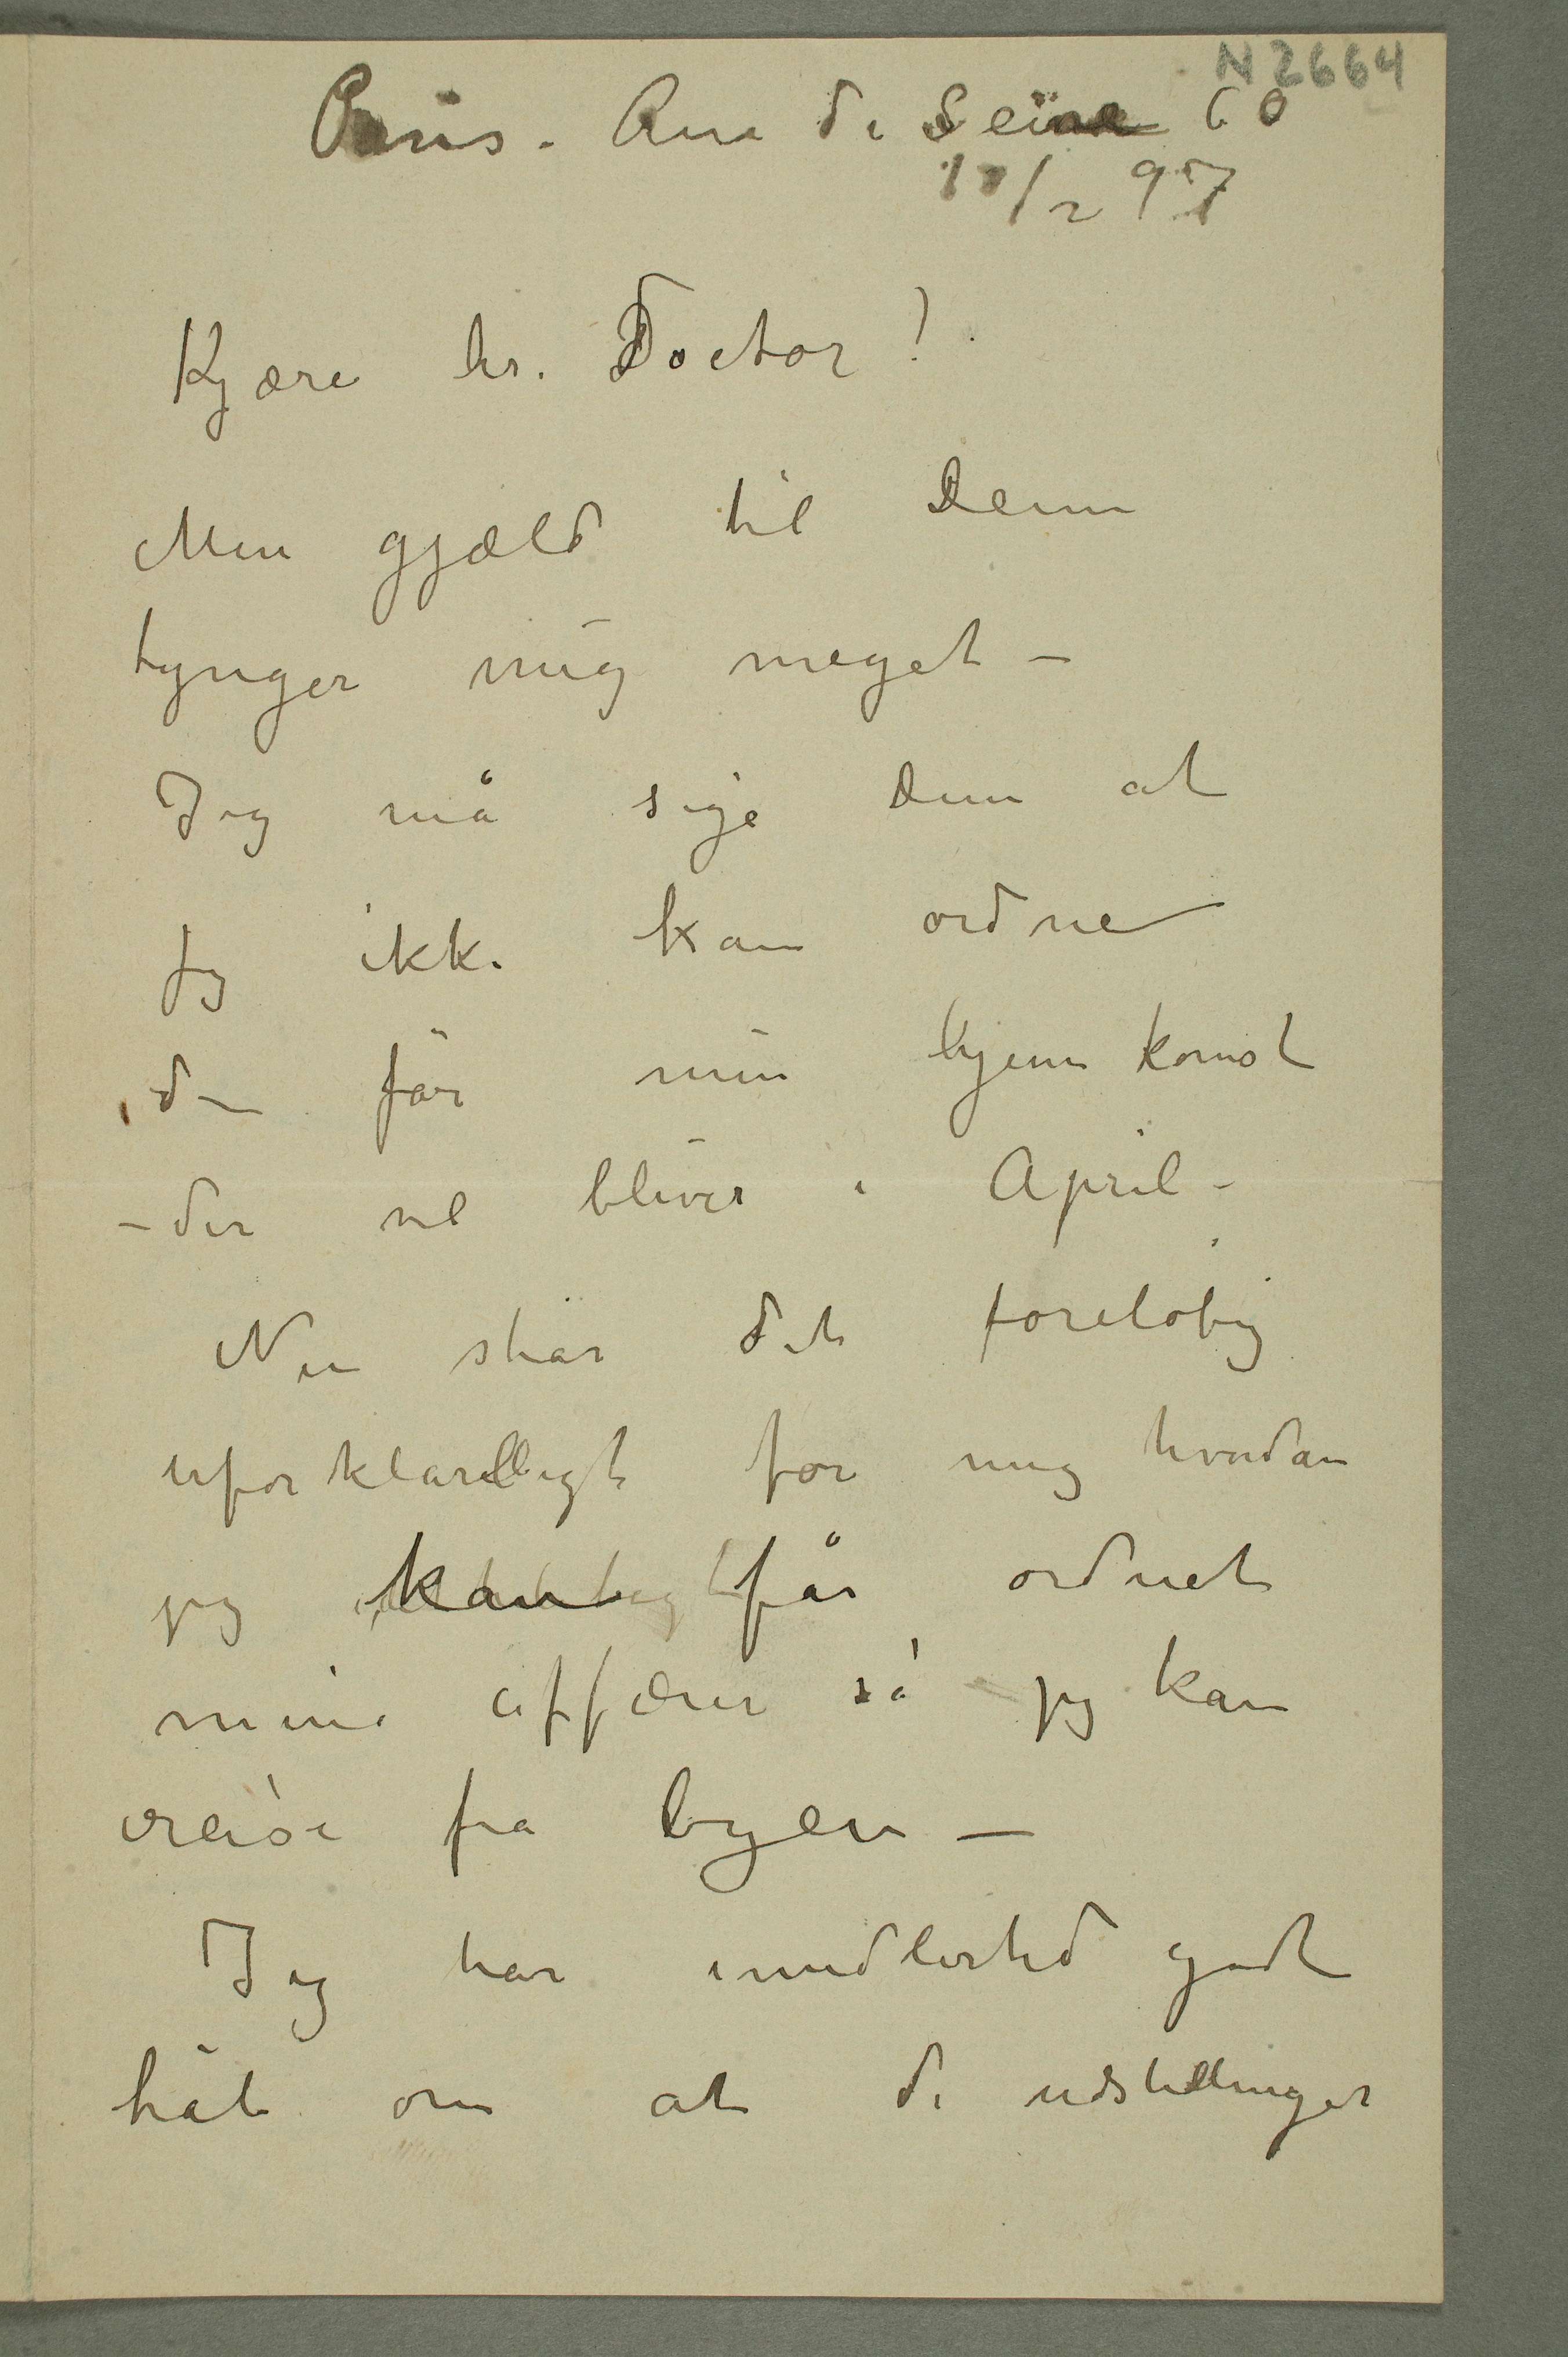 N 2664
Paris. Rue de Seine 60
17/2 97
Kjære hr. Doctor!
Min gjæld til Dem
tynger mig meget –
Jeg må sige Dem at
jeg ikke kan ordne
den før min hjemkomst
– der vel bliver i April –
Nu står det foreløbig
uforklarlligt for mig hvordan
jeg får ordnet
mine affærer så jeg kan
reise fra byen –
Jeg har imidlertid godt
håb om at de udstillinger